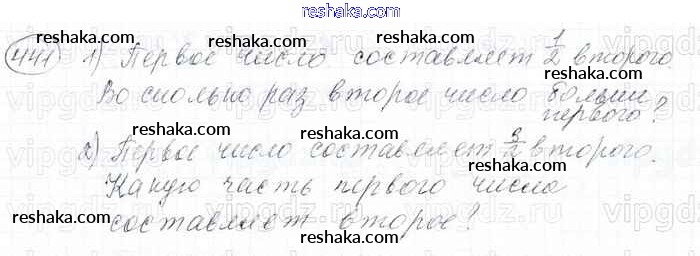 441 1) Первое число составляет 1/2 второго.
Во сколько раз второе число больше
первого?
2) Первое число составляет 3/2 второго.
Какую часть первого числа
составляет второе?
reshaka.com
reshaka.com
reshaka.com
reshaka.com
reshaka.com
reshaka.com
reshaka.com
reshaka.com